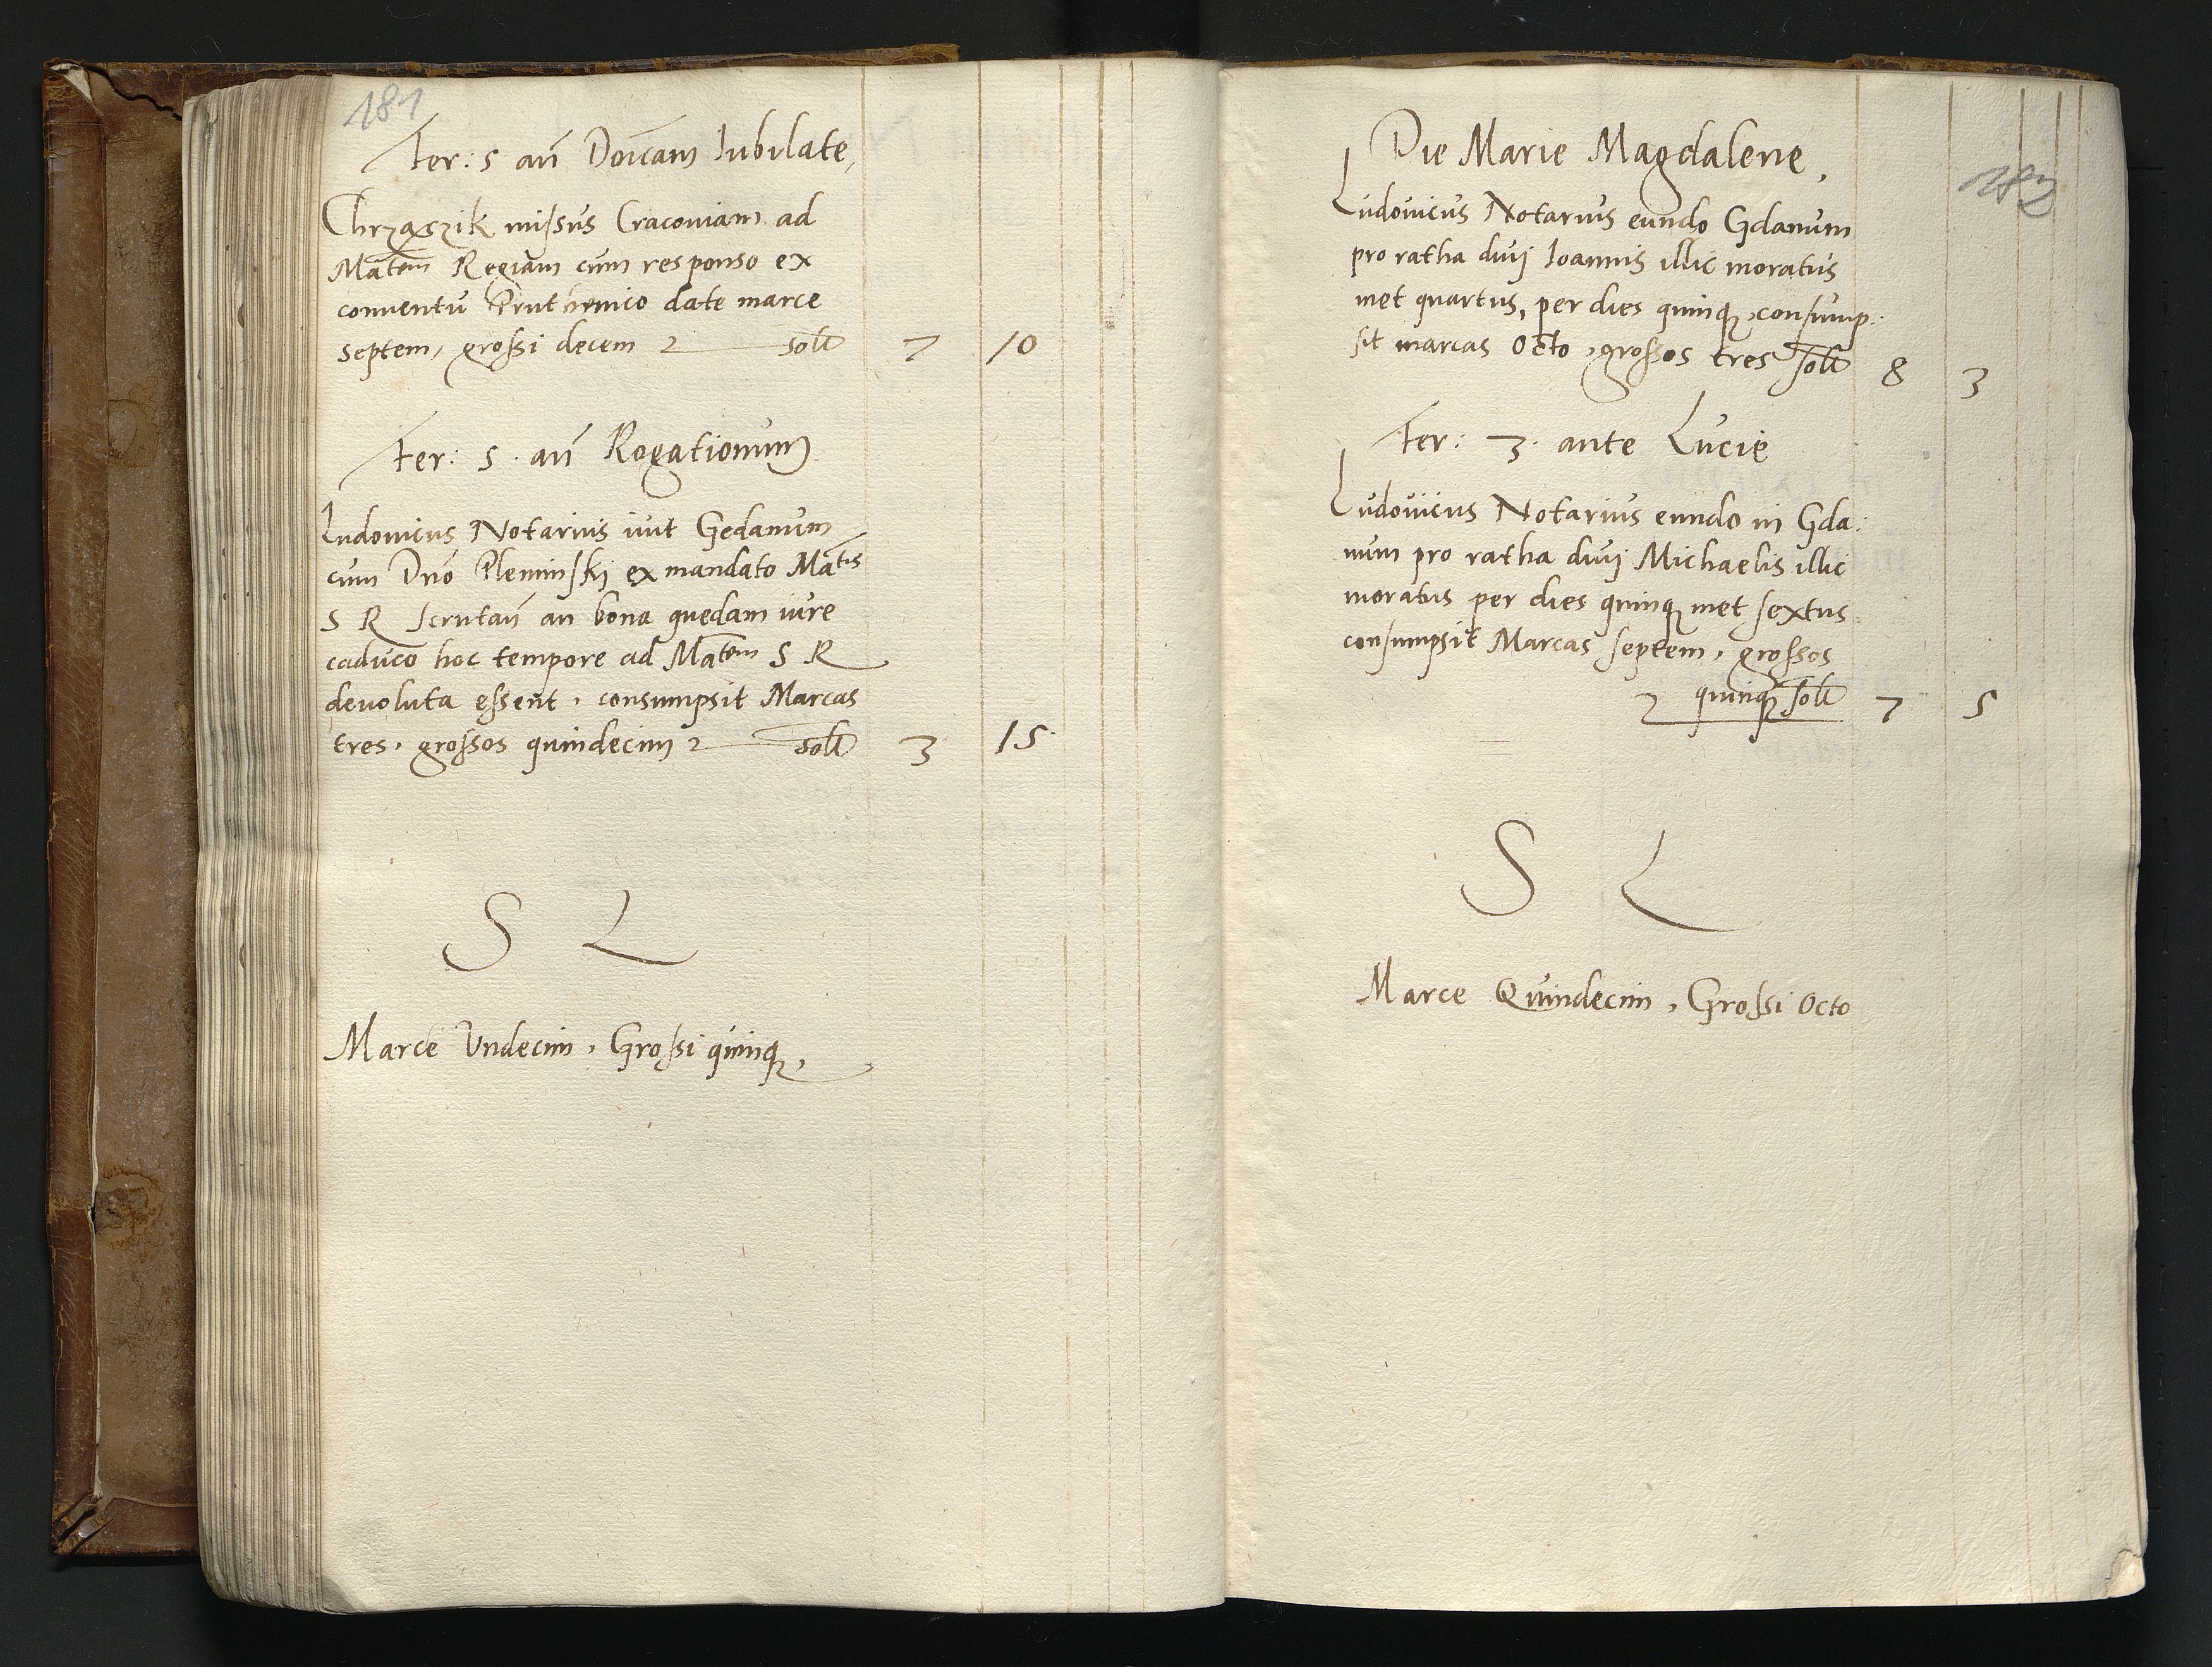 181
Fer: 5 an̄ Doīcam Iubilate,
Chrząszik missus Cracoviam ad
Matem Regiam cum responso ex
conventu Pruthenico date marce
septem, grossi decem 2 solt 7 10
Fer: 5. an̄ Rogationum
Ludovicus Notarius ivit Gedanum
cum Dn̄o Pleminskj ex mandato Matis
S R scrutan̄ an bona quedam iure
caduco hoc tempore ad Matem S R
devoluta essent, consumpsit Marcas
tres, grossos quindecim 2 solt 3 15.
S L
Marce Undecim, Grossi quinq,
182
Die Marie Magdalene,
Ludovicus Notarius eundo Gdanum
pro ratha divj Ioannis illic moratus
met quartus, per dies quinq, consump:
sit marcas Octo, grossos tres solt 8 3
Fer: 3. ante Lucię
Ludovicus Notarius eundo in Gda:
num pro ratha divj Michaelis illic
moratus per dies quinq met sextus
consumpsit Marcas septem, grossos
2 quinq solt 7 5
S L
Marce Quindecim, Grossi Octo